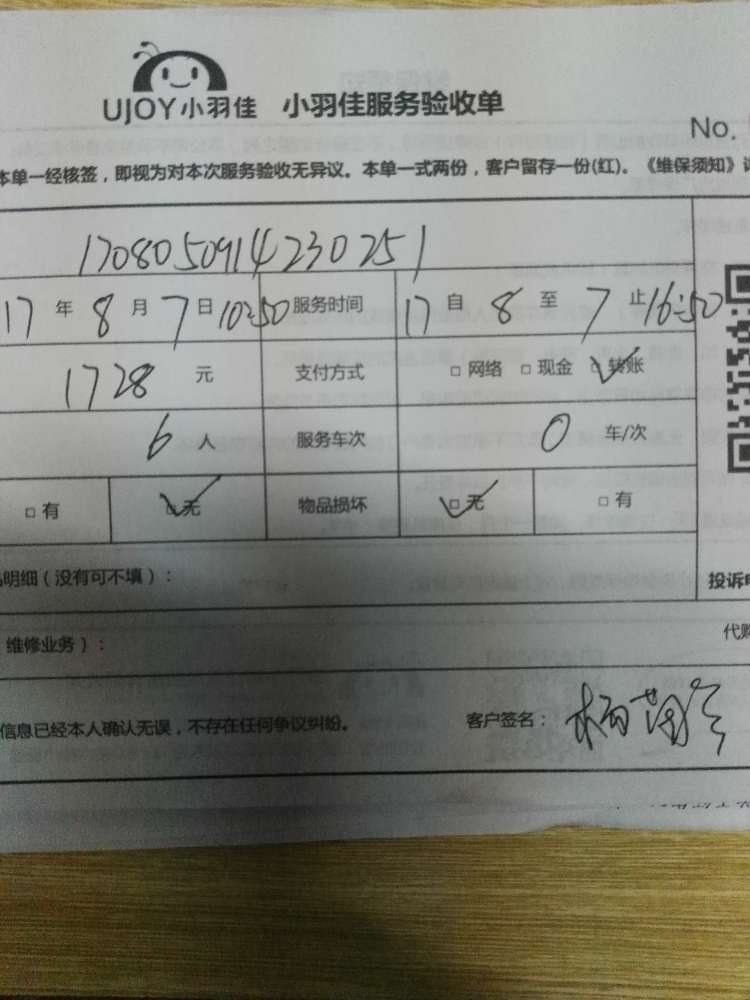 UJOY小羽佳 小羽佳服务验收单
No.
本单一经核签，即视为对本次服务验收无异议。本单一式两份，客户留存一份(红)。《维保须知》
1708050914230251
17年8月7日10:50 服务时间 17自8至7止16:50
1728元 支付方式 □网络 □现金 □转账
6人 服务车次 0车/次
□有 □无 物品损坏 □无 □有
明细（没有可不填）：
投诉
维修业务）：
代购
信息已经本人确认无误，不存在任何争议纠纷。 客户签名：